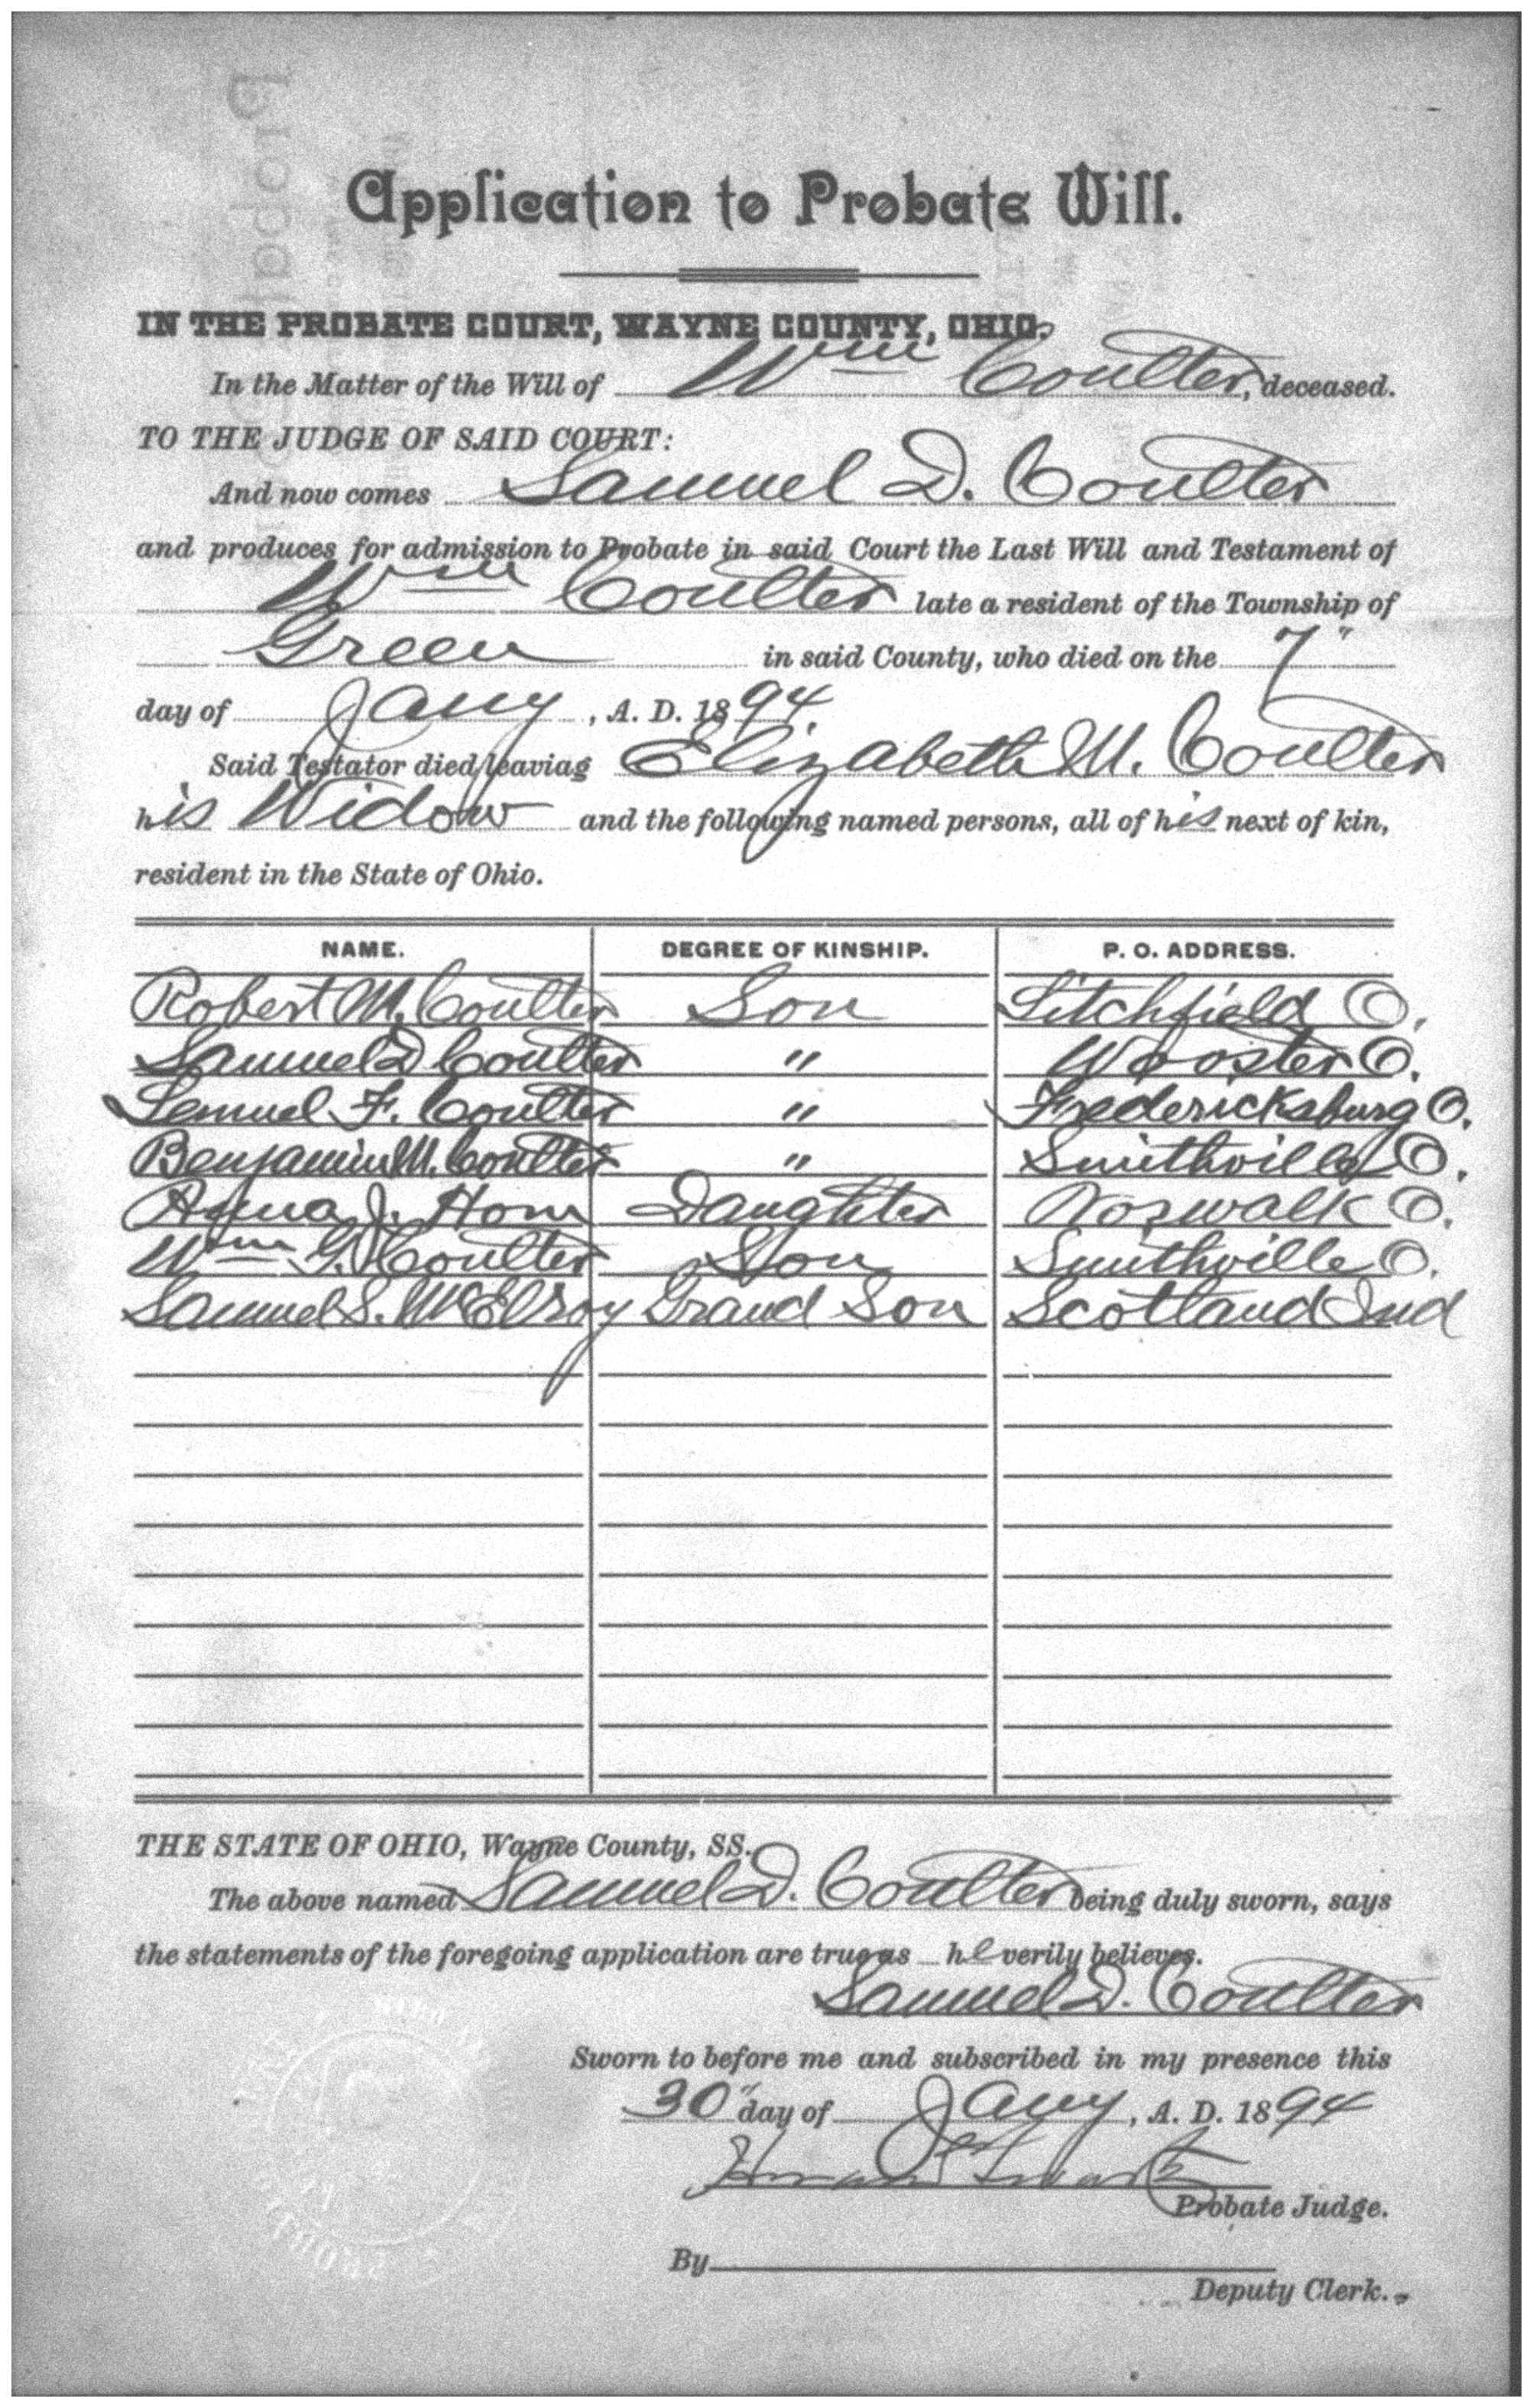 Application to Probate Will.
IN THE PROBATE COURT, WAYNE COUNTY, OHIO.
In the Matter of the Will of Wm Coulter, deceased.
TO THE JUDGE OF SAID COURT:
And now comes Samuel D. Coulter
and produces for admission to Probate in said Court the Last Will and Testament of
Wm Coulter late a resident of the Township of
Green in said County, who died on the 7"
day of Jany, A. D. 1894.
Said Testator died leaving Elizabeth M. Coulter
his Widow and the following named persons, all of his next of kin,
resident in the State of Ohio.
NAME. DEGREE OF KINSHIP. P. O. ADDRESS.
Robert M. Coulter Son Litchfield O.
Samuel D Coulter " Wooster O.
Lemuel F. Coulter " Fredericksburg O.
Benjamin M. Coulter " Smithville O.
Anna J. Horn Daughter Norwalk O.
Wm G. Coulter Son Smithville O.
Samuel S. McElroy Grand Son Scotland Ind
THE STATE OF OHIO, Wayne County, SS.
The above named Samuel D. Coulter being duly sworn, says
the statements of the foregoing application are true as he verily believes.
Samuel D. Coulter
Sworn to before me and subscribed in my presence this
30" day of Jany, A. D. 1894
Probate Judge.
By
Deputy Clerk.